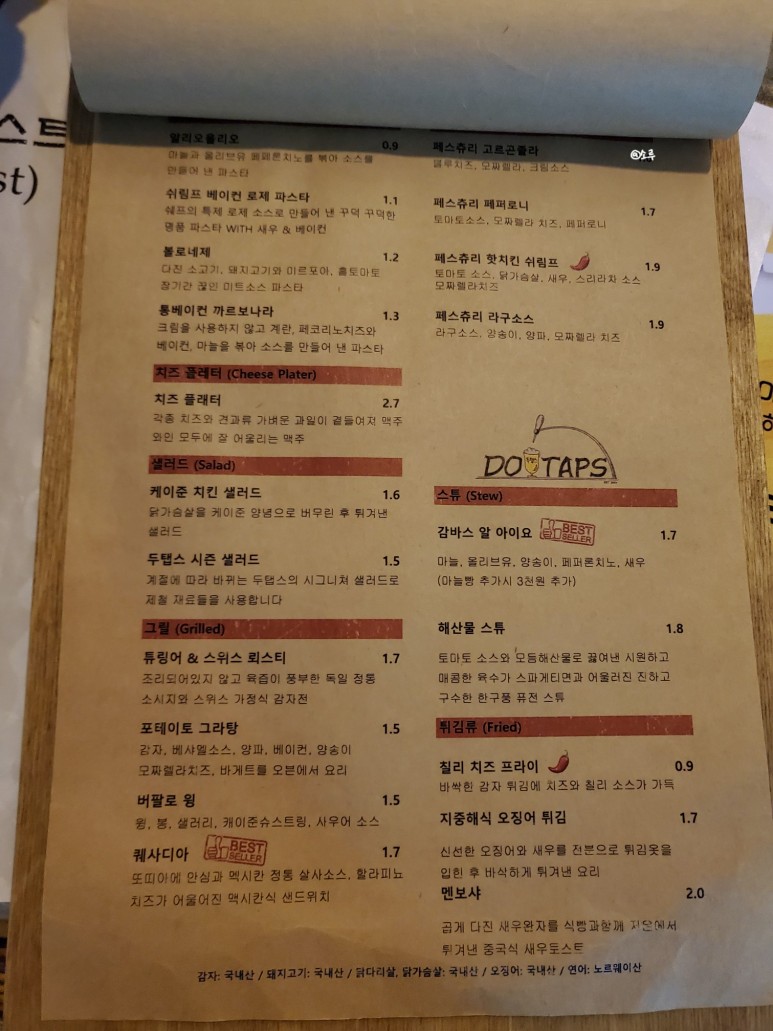 스트
st)
알리오올리오 0.9
마늘과 올리브유 페페론치노를 볶아 소스를
만들어 낸 파스타
쉬림프 베이컨 로제 파스타 1.1
쉐프의 특제 로제 소스로 만들어 낸 꾸덕 꾸덕한
명품 파스타 WITH 새우 & 베이컨
볼로네제 1.2
다진 소고기, 돼지고기와 미르포아, 홀토마토
장기간 끓인 미트소스 파스타
통베이컨 까르보나라 1.3
크림을 사용하지 않고 계란, 페코리노치즈와
베이컨, 마늘을 볶아 소스를 만들어 낸 파스타
치즈 플레터 (Cheese Plater)
치즈 플래터 2.7
각종 치즈와 견과류 가벼운 과일이 곁들여져 맥주
와인 모두에 잘 어울리는 맥주
샐러드 (Salad)
케이준 치킨 샐러드 1.6
닭가슴살을 케이준 양념으로 버무린 후 튀겨낸
샐러드
두탭스 시즌 샐러드 1.5
계절에 따라 바뀌는 두탭스의 시그니쳐 샐러드로
제철 재료들을 사용합니다
그릴 (Grilled)
튜링어 & 스위스 뢰스티 1.7
조리되어있지 않고 육즙이 풍부한 독일 정통
소시지와 스위스 가정식 감자전
포테이토 그라탕 1.5
감자, 베샤멜소스, 양파, 베이컨, 양송이
모짜렐라치즈, 바게트를 오븐에서 요리
버팔로 윙 1.5
윙, 봉, 샐러리, 캐이준슈스트링, 사우어 소스
퀘사디아 BEST SELLER 1.7
또띠아에 안심과 멕시칸 정통 살사소스, 할라피뇨
치즈가 어울어진 맥시칸식 샌드위치
페스츄리 고르곤졸라
@쏘루
블루치즈, 모짜렐라, 크림소스
페스츄리 페퍼로니 1.7
토마토소스, 모짜렐라 치즈, 페퍼로니
페스츄리 핫치킨 쉬림프 1.9
토마토 소스, 닭가슴살, 새우, 스리라차 소스
모짜렐라치즈
페스츄리 라구소스 1.9
라구소스, 양송이, 양파, 모짜렐라 치즈
DO TAPS
스튜 (Stew)
감바스 알 아이요 BEST SELLER 1.7
마늘, 올리브유, 양송이, 페퍼론치노, 새우
(마늘빵 추가시 3천원 추가)
해산물 스튜 1.8
토마토 소스와 모듬해산물로 끓여낸 시원하고
매콤한 육수가 스파게티면과 어울러진 진하고
구수한 한구풍 퓨전 스튜
튀김류 (Fried)
칠리 치즈 프라이 0.9
바싹힌 감자 튀김에 치즈와 칠리 소스가 가득
지중해식 오징어 튀김 1.7
신선한 오징어와 새우를 전분으로 튀김옷을
입힌 후 바삭하게 튀겨낸 요리
멘보샤 2.0
곱게 다진 새우완자를 식빵과함께 저온에서
튀겨낸 중국식 새우토스트
감자: 국내산 / 돼지고기: 국내산 / 닭다리살, 닭가슴살: 국내산 / 오징어: 국내산 / 연어: 노르웨이산